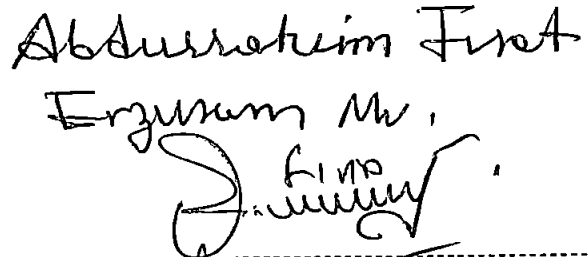 Abdurrahim Fırat
Erzurum Mv.